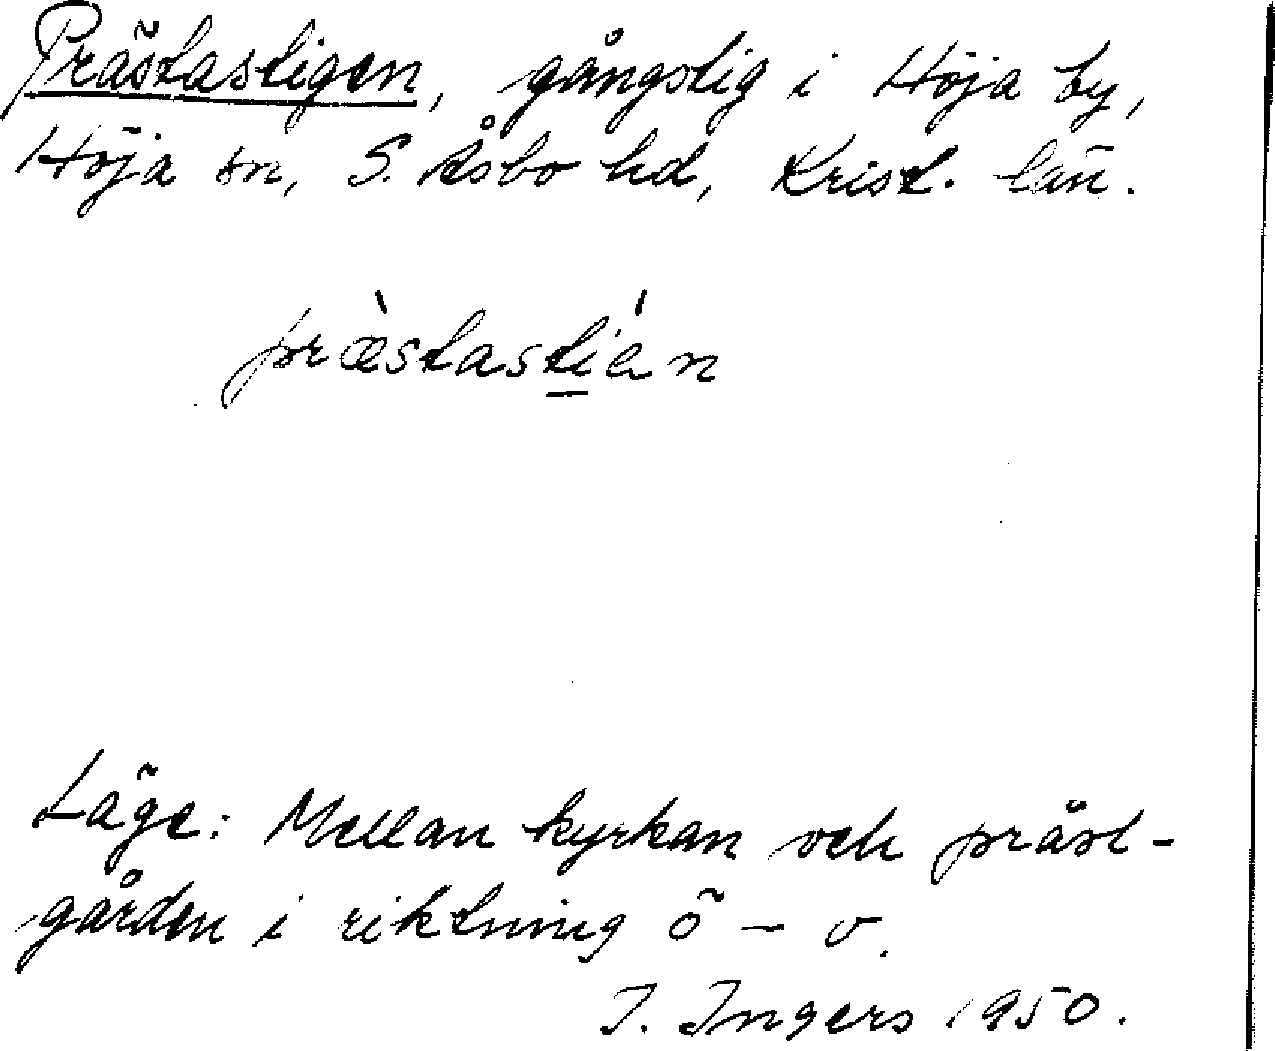 Prästastigen, gångstig i Höja by,
Höja sn, S. Åsbo hd, Krist. län.
præ̀stastíən
Läge: Mellan kyrkan och präst-
gården i riktning ö - v.
I. Ingers 1950.